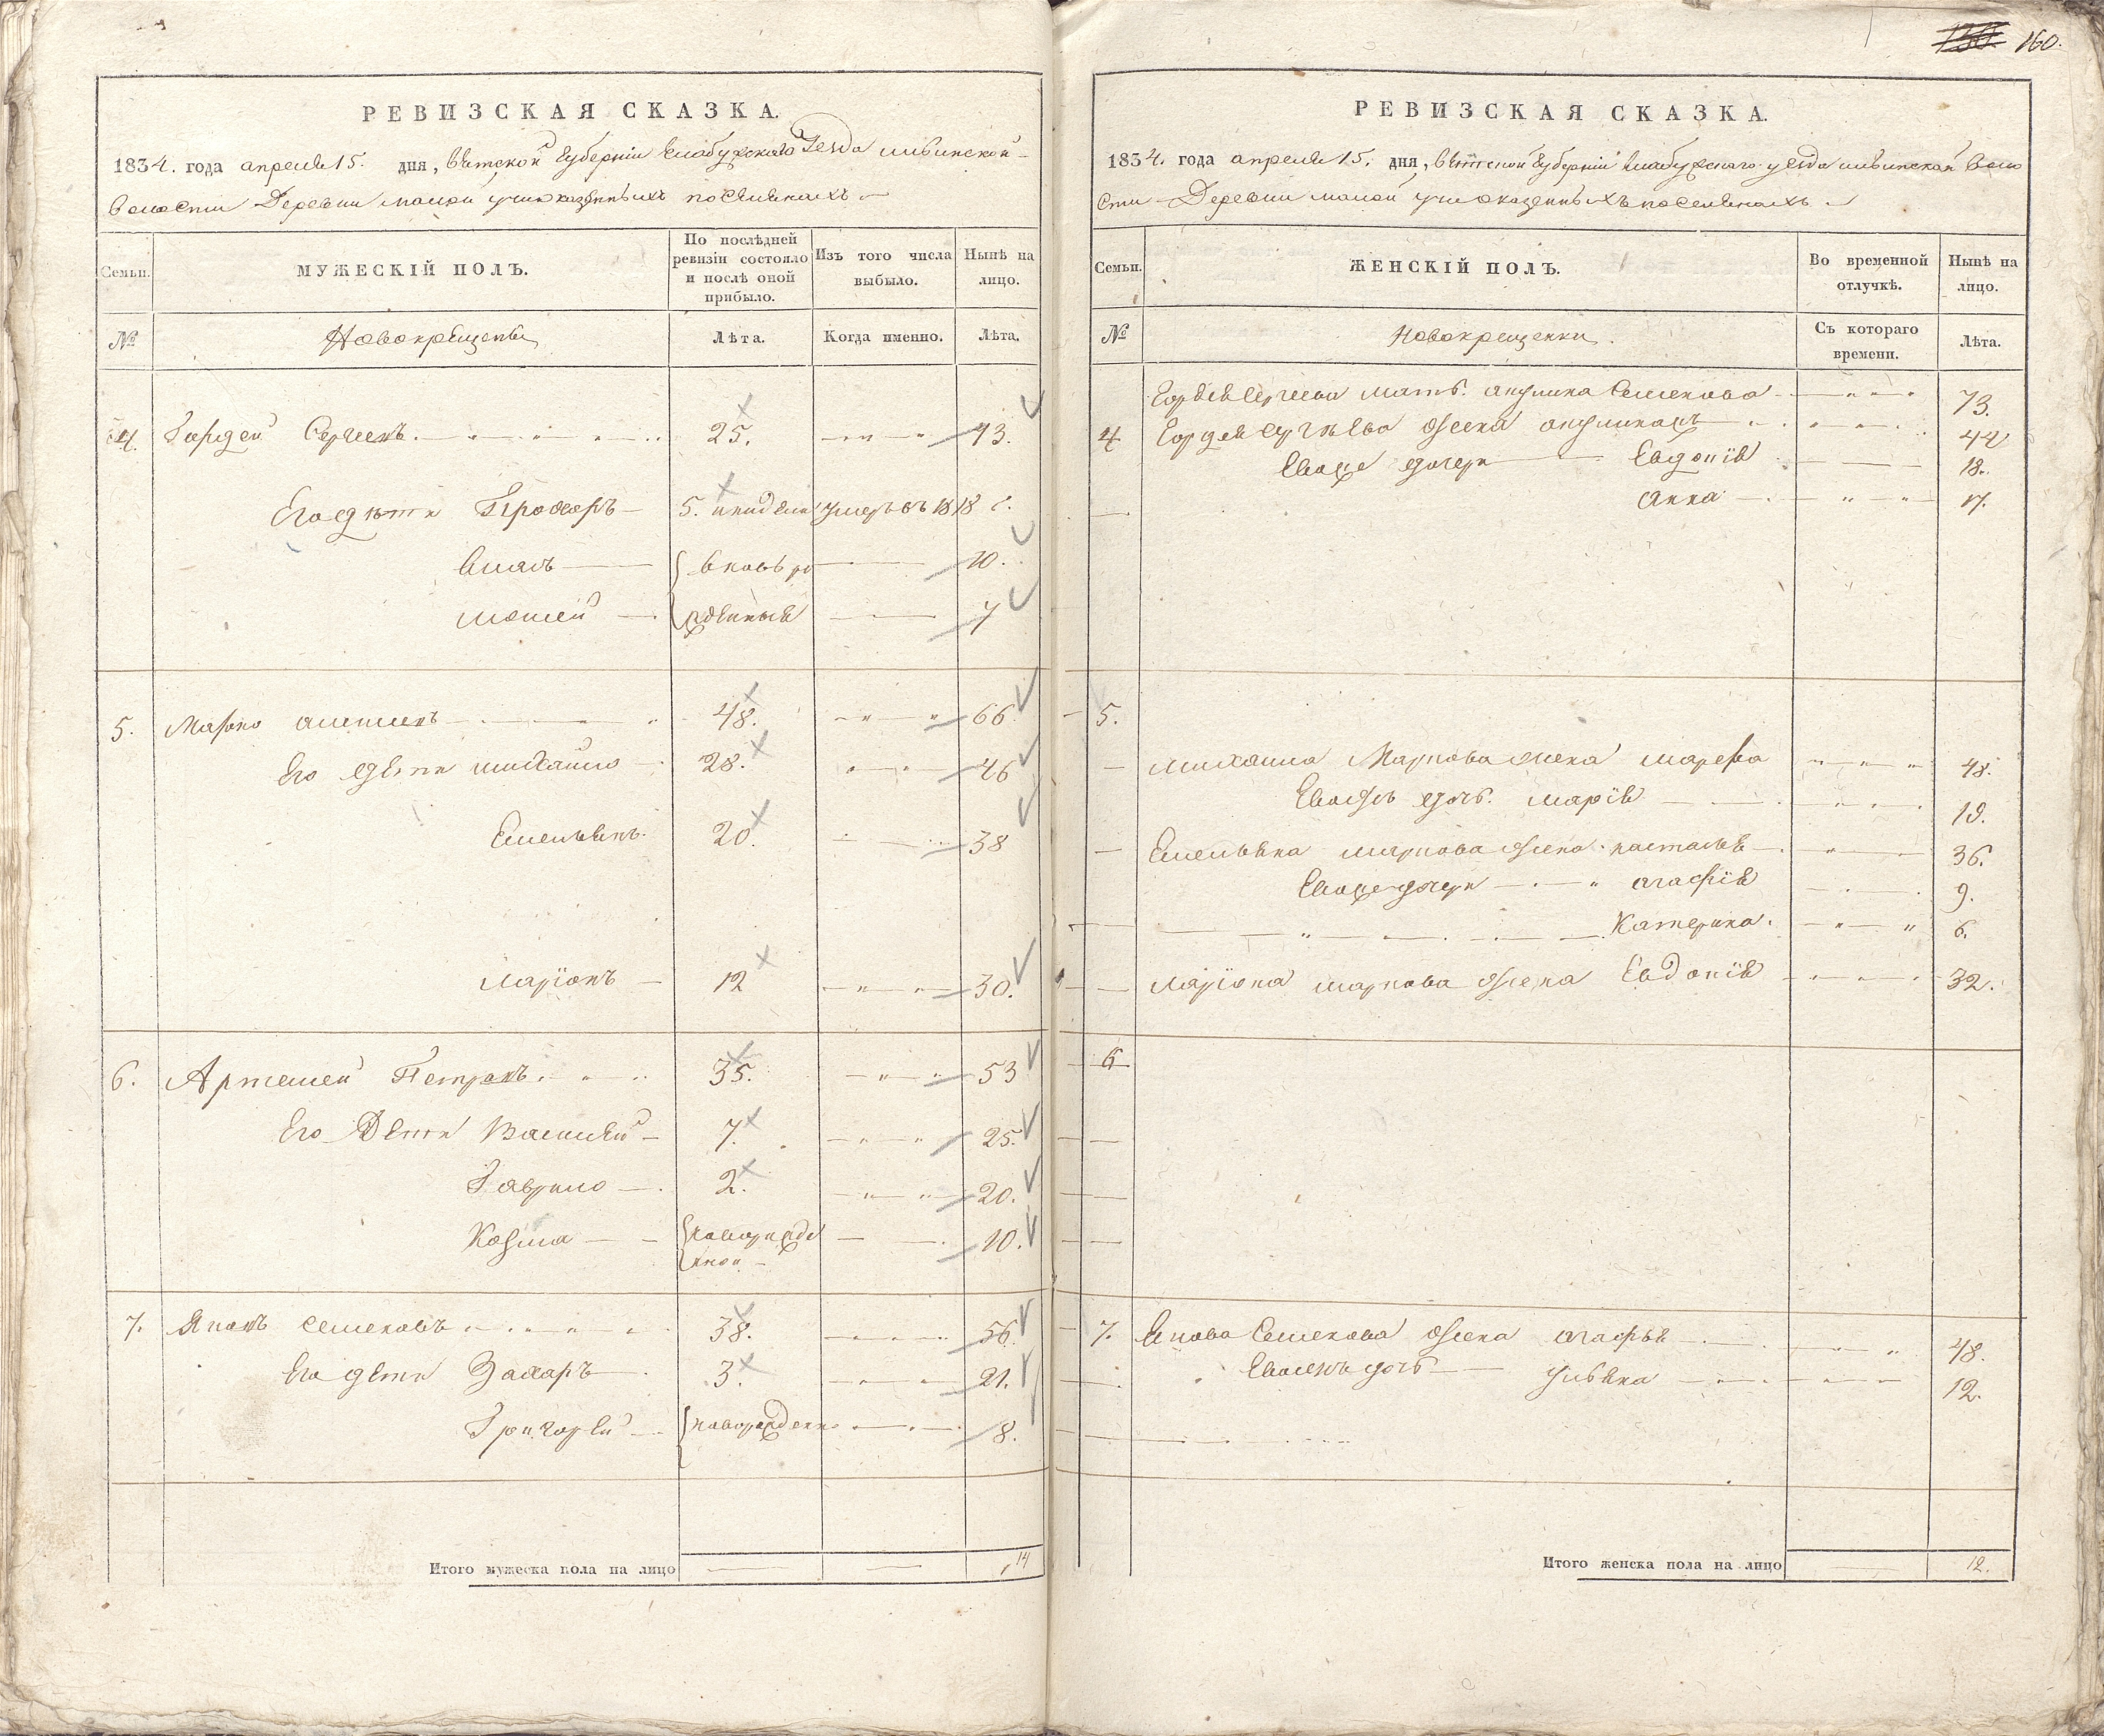 160.
РЕВИЗСКАЯ СКАЗКА.
1834. года апреля 15. дня, Вятской Губерніи Елабужского Уезда
Волости Деревни малой
Семьи.
МУЖЕСКІЙ ПОЛЪ.
По послѣдней ревизіи состояло и послѣ оной прибыло.
Изъ того числа выбыло.
Нынѣ на лицо.
№
Новокрещены
Лѣта.
Когда именно.
Лѣта.
4. Гордей Сергеевъ 25. 43.
Его дѣти Прохоръ 5. умеръ въ 1818 г.
вновь ро 10.
Мосей жденныя 7
5. Марко 48. 66.
Его дети Михайло 28. 46
Емельянъ 20. 38
Ларіонъ 12 30.
6. Артемей Петровъ 35. 53
Его Дети Василей 7. 25.
Гаврило 2. 20.
Козма новорожде 10.
нной
7. Яковъ Семеновъ 38. 56.
Его дети Захаръ 3. 21.
Григорей новорожденн 8.
Итого мужеска пола на лицо 14
РЕВИЗСКАЯ СКАЗКА.
1834. года апреля 15. дня, Вятской Губерніи Елабужского уезда Воло
сти Деревни малой
Семьи.
ЖЕНСКІЙ ПОЛЪ.
Во временной отлучкѣ.
Нынѣ на лицо.
№
Новокрещенки.
Съ котораго времени.
Лѣта.
Гордея Сергеева мать Акулина Семенова 73.
4 Гордея Сергеева жена 44
дочери Евдокія 18.
Анна 17.
5.
Михаила Маркова жена Марфа 48.
дочь Марія 19.
Емельяна Маркова жена Насталья 36.
дочери Агафія 9.
Катерина. 6.
Ларіона Маркова жена Евдокія 32.
6
7. Якова Семенова жена Агафья 48.
дочь Ульяна 12.
Итого женска пола на лицо 12.